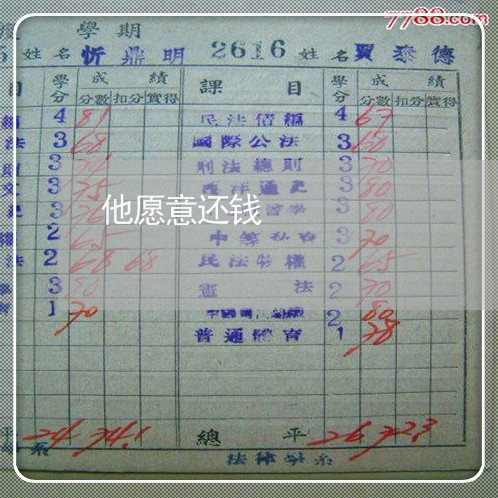 7788.com
學期
姓名 忻鼎明 2616 姓名 賈泰德
目 學分 成績 分數 扣分 實得 課目 學分 成績 分數 扣分 實得
4 81 民法債編 4 67
法 3 68 國際公法 3 60
3 刑法總則 3 70
3 75 西洋通史 3 80
3 3 80
他愿意还钱
權 2 65 3 70
法 2 68 68 民法物權 2 65
3 80 憲法 2 70
1 70 2 80
普通體育 1 78
平 24 74.1 總平 26 72.3
系 法律學系